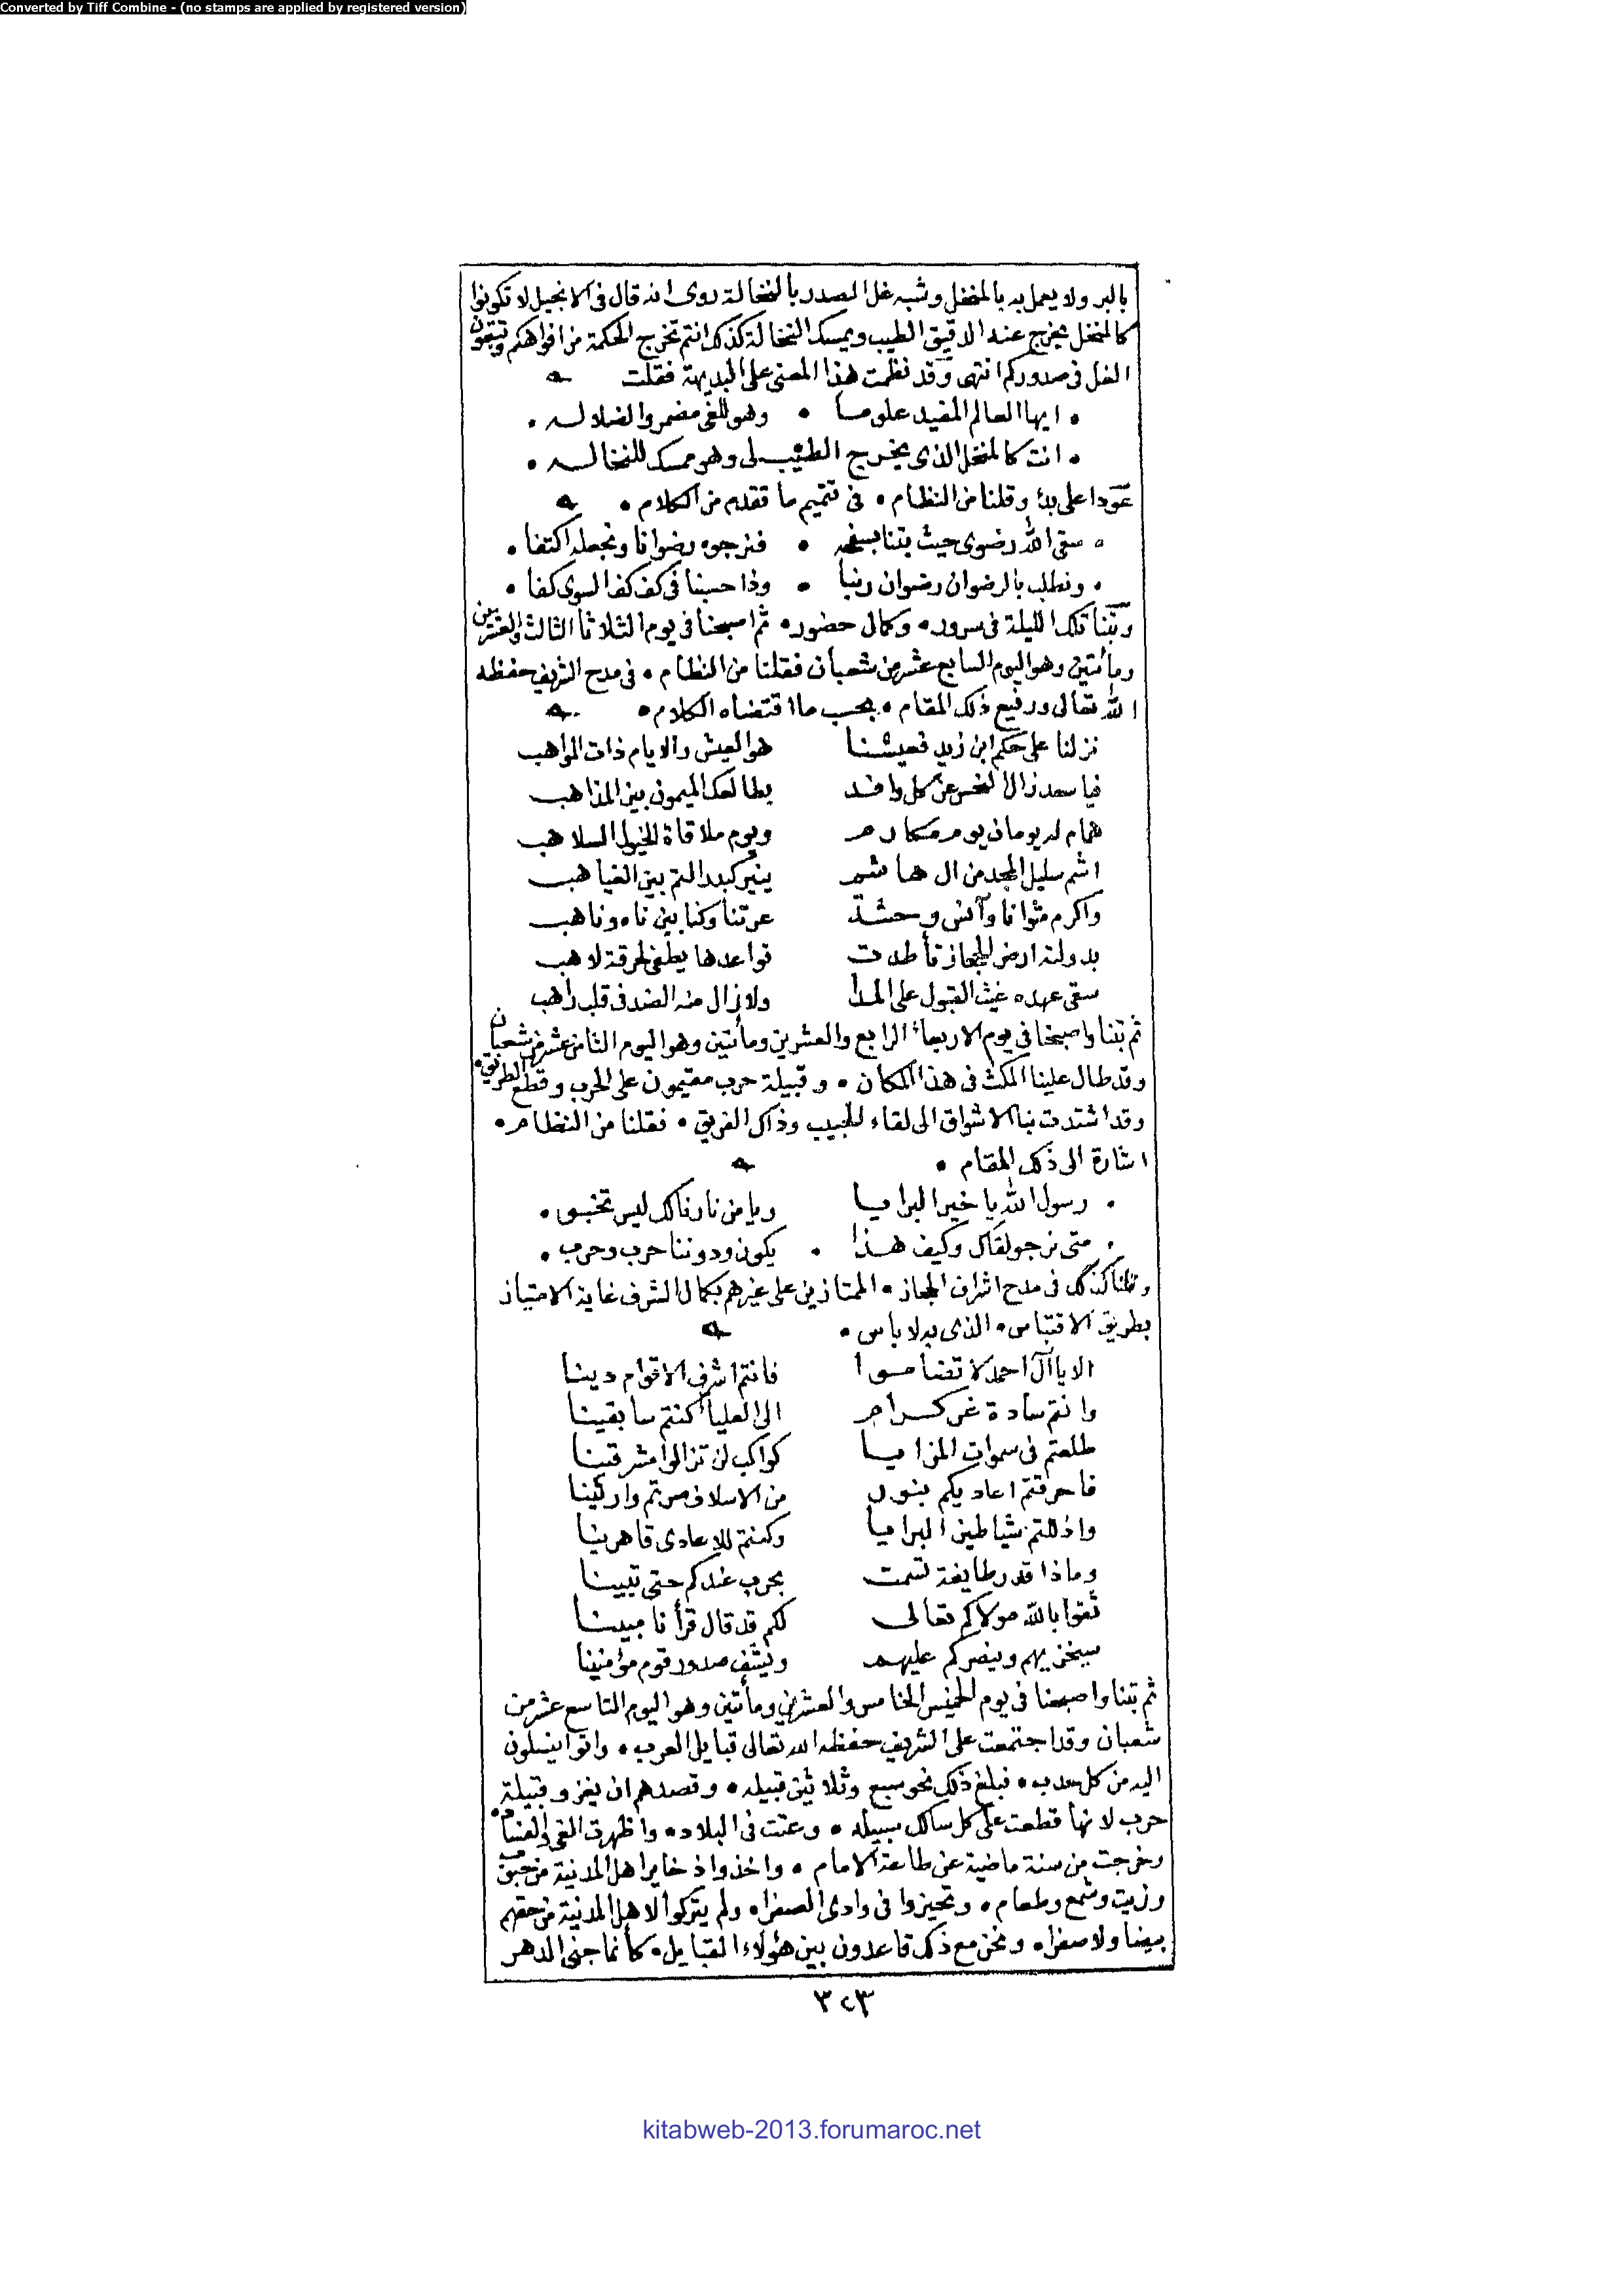 Converted by Tiff Combine - (no stamps are applied by registered version)
بالبر ولا يعمل به بالمنخل وشبه غل الصدر بالنخالة روى انه قال فى الانجيل لا تكونوا
كالمنخل يخرج عنه الدقيق الطيب ويمسك النخالة كذلك انتم تخرج الحكمة من افواهكم وتبقون
الغل فى صدوركم انتهى وقد نظمت هذا المعنى على البديهة فقلت
• ايها العالم المفيد علوما • وهو للغى مضمر والضلاله •
• انت كالمنخل الذى يخرج الطيب لى وهو ممسك للنخاله •
عودا على بدء وقلنا من النظام • فى تتميم ما تقدم من الكلام •
• سقى الله رضوى حيث بتنا بسفحه • فنرجوه رضوانا ونجعله اكتفا •
• ونطلب بالرضوان رضوان ربنا • وذا حسبنا فى كف كفا السوى كفا •
وبتنا تلك الليلة فى سرور • وكمال حضور • ثم اصبحنا فى يوم الثلاثا الثالث والعشرين
ومأتين وهو اليوم السابع عشر من شعبان فقلنا من النظام • فى مدح الشريف حفظه
الله تعالى ورفيع ذلك المقام • بحسب ما اقتضاه الكلام •
نزلنا على حكم ابن زيد فعيشنا هو العيش والايام ذات المواهب
فيا سعد زال النحس عن كل وافد بطالعك الميمون بين المذاهب
همام له يومان يوم مكارم ويوم ملاقاة الخيول السلاهب
اشم سليل المجد من ال هاشم ينير كبدر التم بين الغياهب
واكرم مثوانا وآنس وحشة عرتنا وكنا بين ناه وناهب
بدولته ارض الحجاز تأطدت قواعدها يطفى لحرقة لاهب
سقى عهده غيث القبول على المدا ولا زال منه الضد فى قلب راهب
ثم بتنا واصبحنا فى يوم الاربعاء الرابع والعشرين ومأتين وهو اليوم الثامن عشر من شعبان
وقد طال علينا المكث فى هذا المكان • وقبيلة حرب مقيمون على الحرب وقطع الطريق •
وقد اشتدت بنا الاشواق الى لقاء الحبيب وذاك الفريق • فقلنا من النظام •
اشارة الى ذلك المقام •
• رسول الله يا خير البرايا ويا من نار ذاك ليس تخبو •
• متى نرجو لقاك وكيف هذا • يكون ودوننا حرب وحرب •
وقلنا كذلك فى مدح اشراف الحجاز • الممتازين على غيرهم بكمال الشرف غاية الامتياز
بطريق الاقتباس • الذى به لا باس •
الا يا آل احمد لا تضاموا فانتم اشرف الاقوام دينا
وانتم سادة غر كرام الى العلياء كنتم سابقينا
طلعتم فى سموات المزايا كواكب لن تزالوا مشرقينا
فاحرقتم اعاديكم بنور من الاسلاف صرتم وارثينا
واذللتم شياطين البرايا وكنتم للاعادى قاهرينا
وماذا قدر طايفة تسمت بحرب عندكم حتى تبينا
ثقوا بالله مولاكم تعالى لكم قد قال قرأنا مبينا
سيخزيهم وينصركم عليهم ويشف صدور قوم مؤمنينا
ثم بتنا واصبحنا فى يوم الخميس الخامس والعشرين ومأتين وهو اليوم التاسع عشر من
شعبان وقد اجتمعت على الشريف حفظه الله تعالى قبايل العرب • واتوا ينسلون
اليه من كل حدب • فبلغ ذلك نحو سبع وثلاثين قبيله • وقصدهم ان يغزو قبيلة
حرب لانها قطعت على كل سالك سبيله • وعثت فى البلاد • واظهرت الغى والفساد •
وخرجت من سنة ماضية عن طاعة الامام • واخذوا ذخاير اهل المدينة من حب
وزيت وشمع وطعام • وتحيزوا فى وادى الصفرا • ولم يتركوا لاهل المدينة من حقهم
بيضا ولا صفرا • ونحن مع ذلك قاعدون بين هؤلاء القبايل • كأنما جنى الدهر
٣٢٣
kitabweb-2013.forumaroc.net